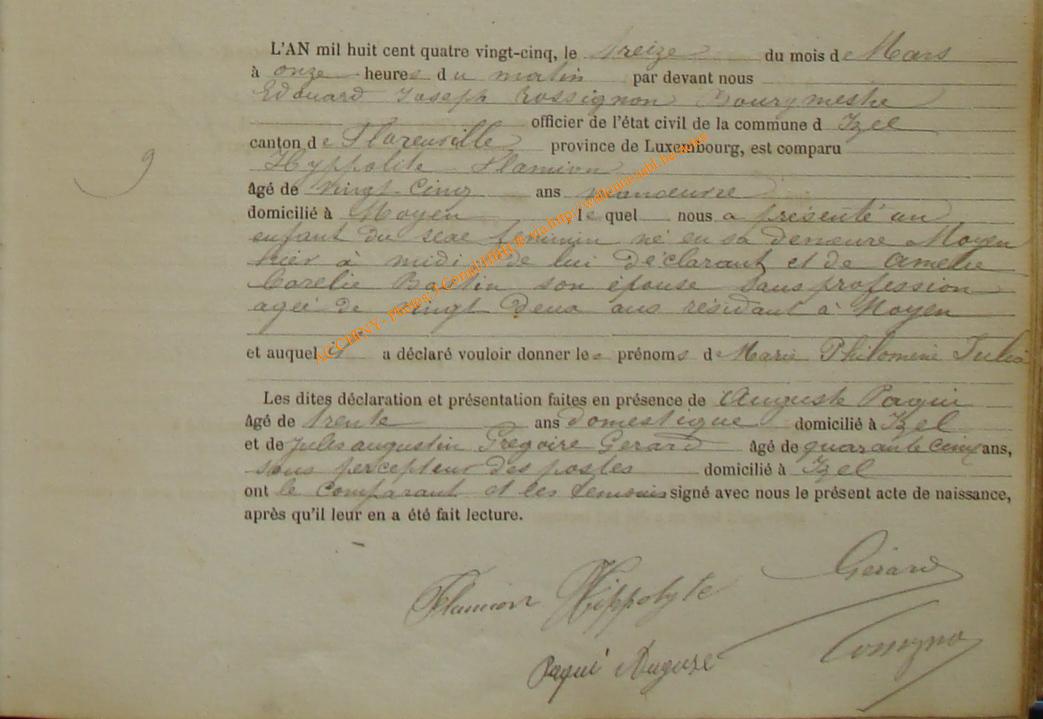 L'AN mil huit cent quatre vingt-cinq, le treize du mois de Mars
à onze heures du matin par devant nous
Edouard Joseph Rossignon Bourgmestre
officier de l'état civil de la commune d Izel
9
canton de Florenville province de Luxembourg, est comparu
Hyppolite Flamion
âgé de vingt-cinq ans manoeuvre
domicilié à Moyen lequel nous a présenté un
enfant du sexe féminin né en sa demeure Moyen
hier à midi de lui déclarant et de Amélie
Corélie Bastin son épouse sans profession
agée de vingt Deux ans résidant à Moyen
et auquel il a déclaré vouloir donner les prénoms d Marie Philomène Julia
Les dites déclaration et présentation faites en présence de Auguste Paqui
âgé de trente ans domestique domicilié à Izel
et de Jules augustin Grégoire Gerard âgé de quarante cinq ans,
sous percepteur des postes domicilié à Izel
ont le comparant et les temoins signé avec nous le présent acte de naissance,
après qu'il leur en a été fait lecture.
Gérard
Flamion Hippolyte
Paqui Auguse